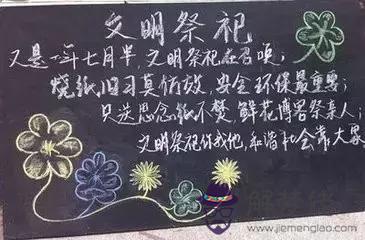 文明祭祀
又是一年七月半，文明祭祀在召唤；
烧纸旧习莫仿效，安全环保最重要；
只送思念纸不焚，鲜花博署祭亲人；
文明祭祀你我他，和谐社会靠大家
www.jiemenglao.com